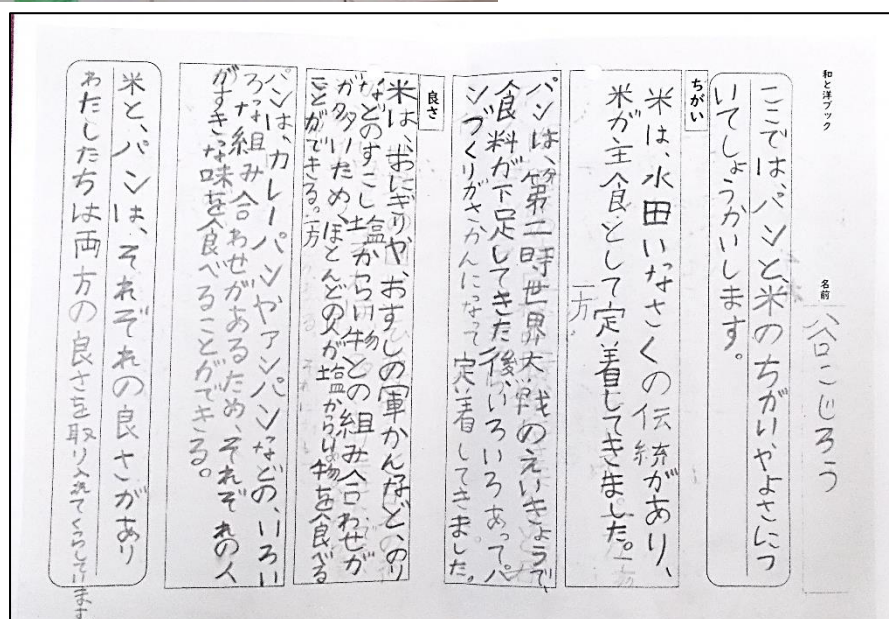 和と洋ブック
名前
谷こじろう
ここでは、パンと米のちがいやよさにつ
いてしょうかいします。
ちがい
米は、水田いなさくの伝統があり、
米が主食として定着してきました。
一方、
パンは、第二時世界大戦のえいきょうで、
食料が不足してきた後、いろいろあってパ
ンづくりがさかんになって定着してきました。
良さ
米は、おにぎりや、おすしの軍かんなど、のり
などのすこし塩からい物との組み合わせが
多いため、ほとんどの人が塩からい物を食べる
ことができる。一方
パンは、カレーパンやアンパンなどの、いろい
ろな組み合わせがあるため、それぞれの人
がすきな味を食べることができる。
米と、パンは、それぞれの良さがあり
わたしたちは両方の良さを取り入れてくらしています